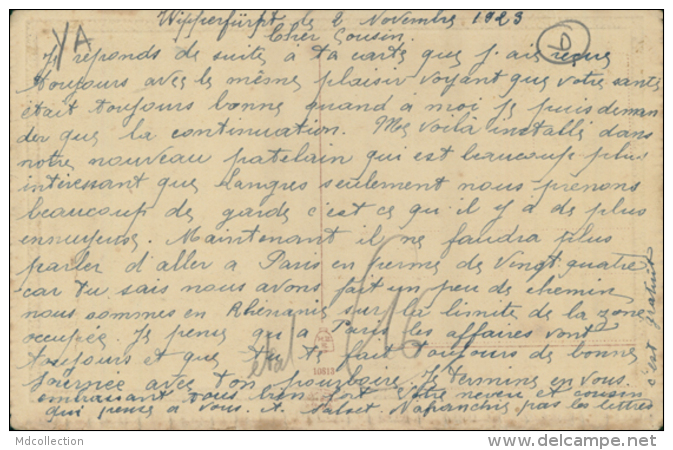 Wipperfürpt le 2 Novembre 1923
Cher Cousin.
Je reponds de suite à ta carte que j'ai reçue
toujours avec le même plaisir voyant que votre santé
était toujours bonne quand à moi je puis deman
der que la continuation. Me voilà installé dans
notre nouveau patelain qui est beaucoup plus
intéressant que Langres seulement nous prenons
beaucoup de garde c'est ce qu'il y a de plus
ennuyeux. Maintenant il ne faudra plus
parler d'aller a Paris en perme de vingt quatre
car tu sais nous avons fait un peu de chemin
nous sommes en Rhénanie sur la limite de la zone
occupée. Je pense qu'a Paris les affaires vont
toujours et que tu te fait toujours de bonne
journée avec ton pourboire. Je termine en vous
embrassant tous bien fort Votre neveu et cousin
qui pense a vous. A. Nafranchis pas les lettres
c'est gratuit
YA
D
10813
Mdcollection
www.delcampe.net